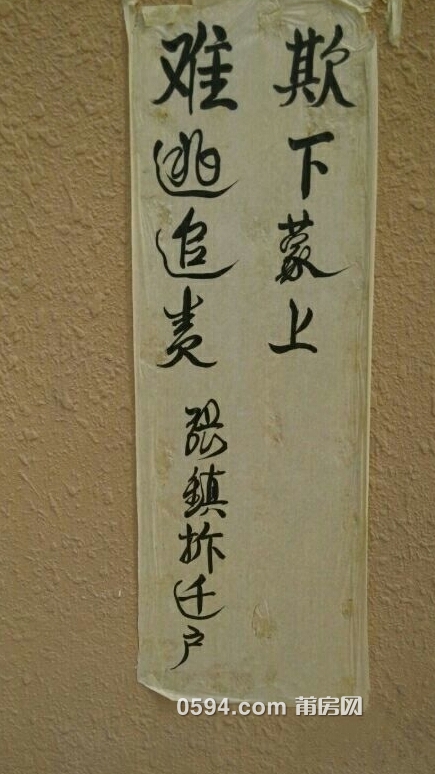 欺下蒙上
难逃追责
張鎮拆迁户
0594.com 莆房网